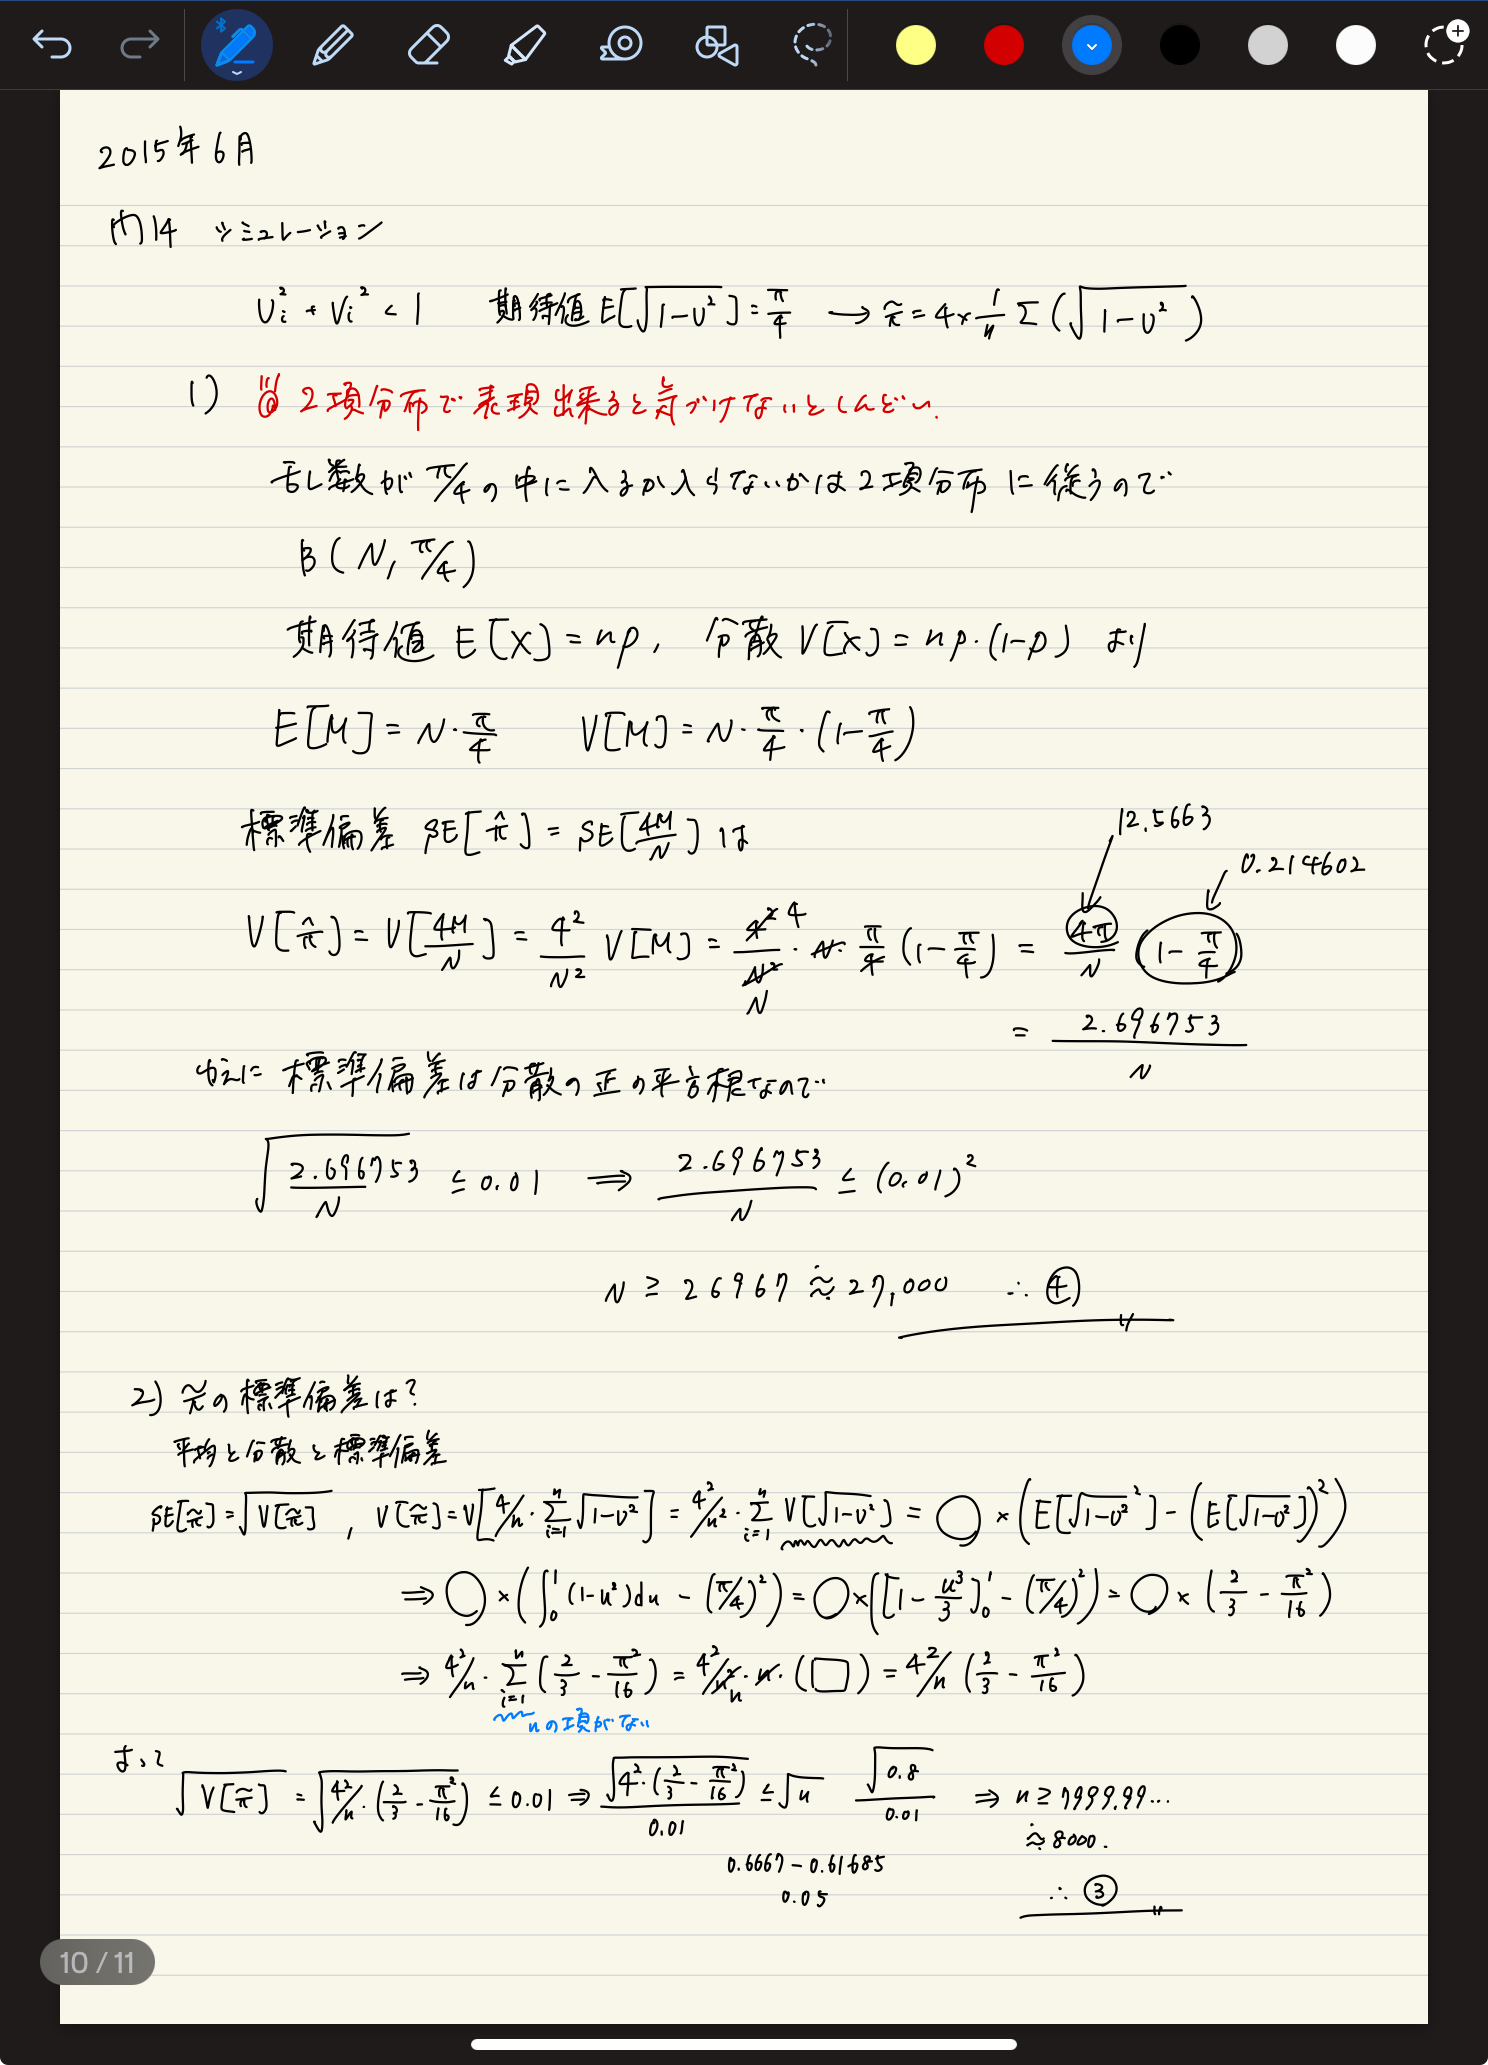 2015年6月
問14 シミュレーション
Ui² + Vi² < 1 期待値 E[√(1-U²)] = π/4 → π̃ = 4×1/n Σ(√(1-U²))
1) 2項分布で表現出来ると気づけないとしんどい.
乱数が π/4 の中に入るか入らないかは2項分布に従うので
B(N, π/4)
期待値 E[X] = np, 分散 V[X] = np・(1-p) より
E[M] = N・π/4 V[M] = N・π/4・(1-π/4)
標準偏差 SE[π̂] = SE[4M/N] は
12.5663
0.214602
V[π̂] = V[4M/N] = 4²/N² V[M] = 4²/N² 4 N・N・π/4 (1-π/4) = 4π/N (1-π/4)
= 2.696753/N
ゆえに 標準偏差は分散の正の平方根なので
√(2.696753/N) ≤ 0.01 ⇒ 2.696753/N ≤ (0.01)²
N ≥ 26967 ≈ 27,000 ∴ ④
2) π̃の標準偏差は?
平均と分散と標準偏差
SE[π̃] = √V[π̃], V[π̃] = V[4/n・Σ_{i=1}^{n} √(1-U²)] = 4²/n²・Σ_{i=1}^{n} V[√(1-U²)] = ○ × (E[√(1-U²)²] - (E[√(1-U²)])²)
⇒ ○ × (∫₀¹ (1-u²)du - (π/4)²) = ○ × ([1 - u³/3]₀¹ - (π/4)²) = ○ × (2/3 - π²/16)
⇒ 4²/n・Σ_{i=1}^{n} (2/3 - π²/16) = 4²/n² n・n・(□) = 4²/n (2/3 - π²/16)
nの項がない
よって
√V[π̃] = √(4²/n・(2/3 - π²/16)) ≤ 0.01 ⇒ √(4²・(2/3 - π²/16))/0.01 ≤ √n √0.8/0.01 ⇒ n ≥ 7999.99...
≈ 8000.
0.6667 - 0.61685
0.05
∴ ③
10 / 11